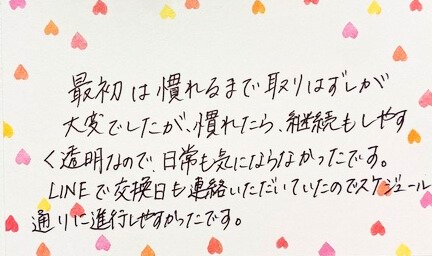 最初は慣れるまで取りはずしが
大変でしたが、慣れたら、継続もしやす
く透明なので、日常も気にならなかったです。
LINEで交換日も連絡いただいていたのでスケジュール
通りに進行しやすかったです。